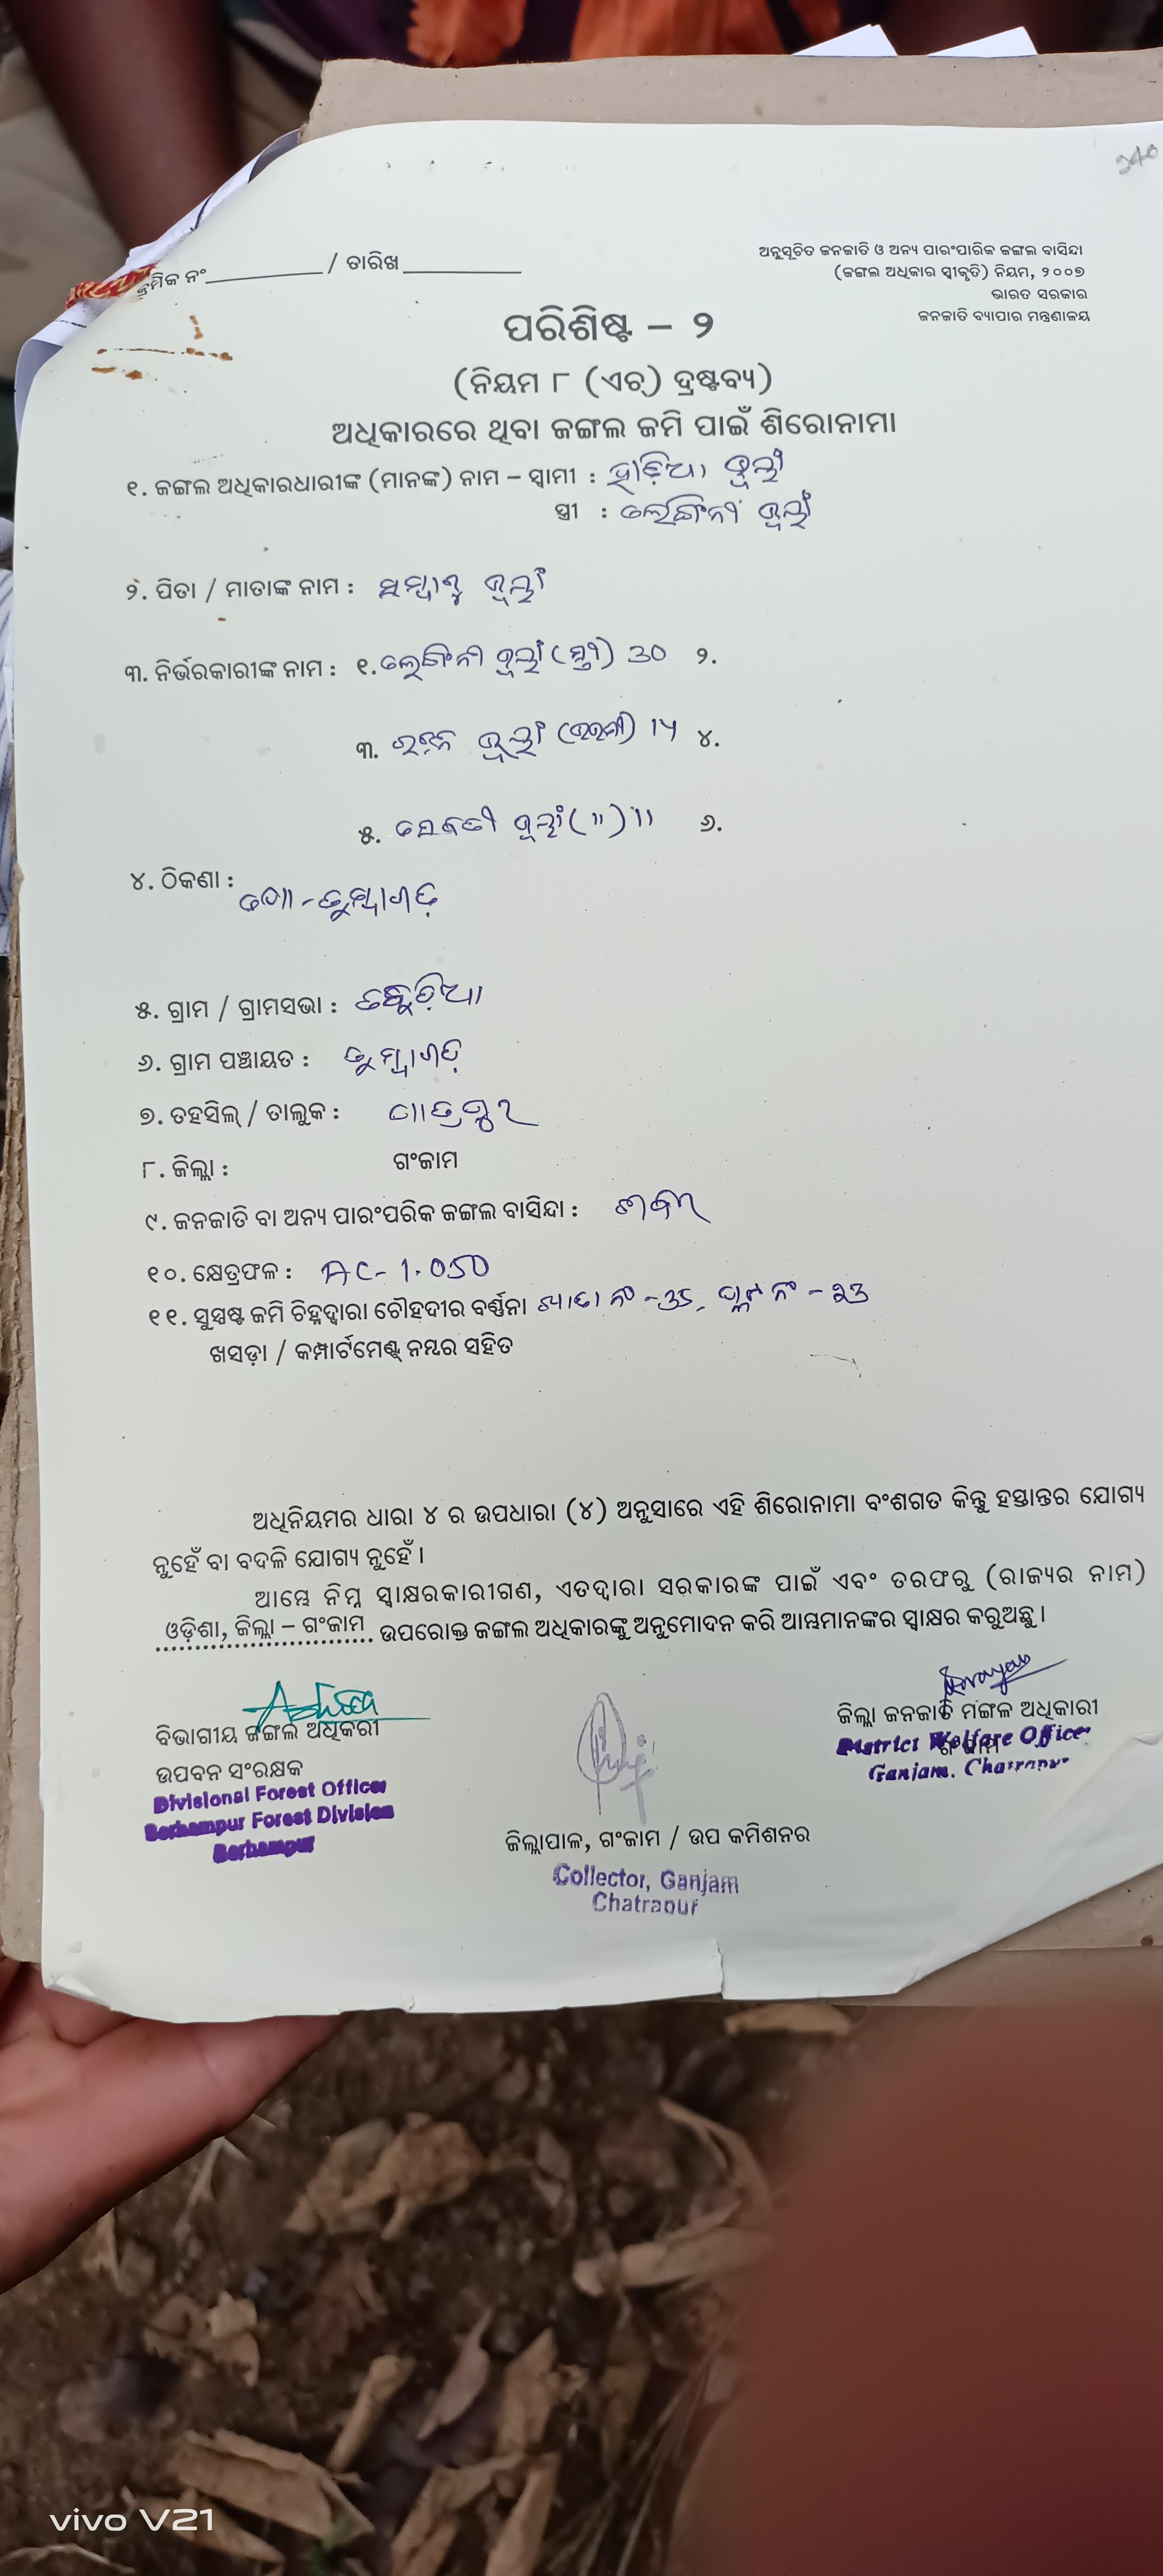 240
କ୍ରମିକ ନଂ / ତାରିଖ
ଅନୁସୂଚିତ ଜନଜାତି ଓ ଅନ୍ୟ ପାରଂପାରିକ ଜଙ୍ଗଲ ବାସିନ୍ଦା
(ଜଙ୍ଗଲ ଅଧିକାର ସ୍ୱୀକୃତି) ନିୟମ, ୨୦୦୭
ଭାରତ ସରକାର
ଜନଜାତି ବ୍ୟାପାର ମନ୍ତ୍ରଣାଳୟ
ପରିଶିଷ୍ଟ – ୨
(ନିୟମ ୮ (ଏଚ୍) ଦ୍ରଷ୍ଟବ୍ୟ)
ଅଧିକାରରେ ଥିବା ଜଙ୍ଗଲ ଜମି ପାଇଁ ଶିରୋନାମା
୧. ଜଙ୍ଗଲ ଅଧିକାରଧାରୀଙ୍କ (ମାନଙ୍କ) ନାମ – ସ୍ୱାମୀ : ହାଡ଼ିଆ
ସ୍ତ୍ରୀ :
୨. ପିତା / ମାତାଙ୍କ ନାମ :
୩. ନିର୍ଭରକାରୀଙ୍କ ନାମ : ୧. (ସ୍ତ୍ରୀ) 30 ୨.
୩. 14 ୪.
୫. (") 11 ୬.
୪. ଠିକଣା :
ପୋ - ତୁମ୍ବାଗଡ଼
୫. ଗ୍ରାମ / ଗ୍ରାମସଭା :
୬. ଗ୍ରାମ ପଞ୍ଚାୟତ : ତୁମ୍ବାଗଡ଼
୭. ତହସିଲ୍ / ତାଲୁକ : ପାତ୍ରପୁର
୮. ଜିଲ୍ଲା : ଗଂଜାମ
୯. ଜନଜାତି ବା ଅନ୍ୟ ପାରଂପରିକ ଜଙ୍ଗଲ ବାସିନ୍ଦା : ଶବର
୧୦. କ୍ଷେତ୍ରଫଳ : AC- 1.050
୧୧. ସୁସ୍ପଷ୍ଟ ଜମି ଚିହ୍ନଦ୍ୱାରା ଚୌହଦୀର ବର୍ଣ୍ଣନା ଖାତା ନଂ -35, ପ୍ଲଟ ନଂ - 23
ଖସଡ଼ା / କମ୍ପାର୍ଟମେଣ୍ଟ୍ ନମ୍ବର ସହିତ
ଅଧିନିୟମର ଧାରା ୪ ର ଉପଧାରା (୪) ଅନୁସାରେ ଏହି ଶିରୋନାମା ବଂଶଗତ କିନ୍ତୁ ହସ୍ତାନ୍ତର ଯୋଗ୍ୟ
ନୁହେଁ ବା ବଦଳି ଯୋଗ୍ୟ ନୁହେଁ ।
ଆମ୍ଭେ ନିମ୍ନ ସ୍ୱାକ୍ଷରକାରୀଗଣ, ଏତଦ୍ୱାରା ସରକାରଙ୍କ ପାଇଁ ଏବଂ ତରଫରୁ (ରାଜ୍ୟର ନାମ)
ଓଡ଼ିଶା, ଜିଲ୍ଲା – ଗଂଜାମ ଉପରୋକ୍ତ ଜଙ୍ଗଲ ଅଧିକାରଙ୍କୁ ଅନୁମୋଦନ କରି ଆମ୍ଭମାନଙ୍କର ସ୍ୱାକ୍ଷର କରୁଅଛୁ ।
ବିଭାଗୀୟ ଜଙ୍ଗଲ ଅଧିକରୀ
ଉପବନ ସଂରକ୍ଷକ
Divisional Forest Officer
Berhampur Forest Division
Berhampur
ଜିଲ୍ଲାପାଳ, ଗଂଜାମ / ଉପ କମିଶନର
Collector, Ganjam
Chatrapur
ଜିଲ୍ଲା ଜନଜାତି ମଙ୍ଗଳ ଅଧିକାରୀ
ଗଂଜାମ
District Welfare Officer
Ganjam, Chatrapur
vivo V21